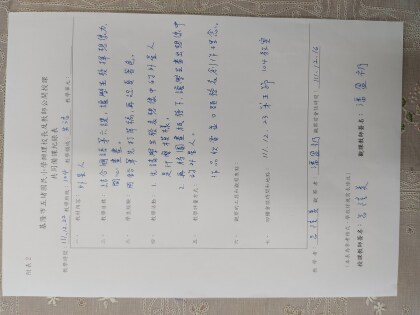 附表2
基隆市五堵國民小學辦理校長及教師公開授課
共同備課紀錄表
教學時間：111.12.23 教學班級：104 教學領域：生活 教學單元：
一、 教材內容： 外星人
二、 教學目標： 結合國語第六課，讓學生發揮想像力，
開心畫畫。
三、 學生經驗： 用鉛筆先打草稿，再後著色。
四、 教學活動： 1. 先請學生發表想像中的外星人
是什麼模樣。
2. 再將圖畫紙發下，讓學生畫出想像中
的外星人。
五、 教學評量方式：
作品欣賞並口頭發表創作理念。
六、 觀察的工具和觀察焦點：
七、 回饋會談時間和地點： 111.12.23 第五節 104教室
教學者： 觀察者：潘盈 觀察前會談時間：111.12.16
授課教師簽名： 觀課教師簽名：潘盈